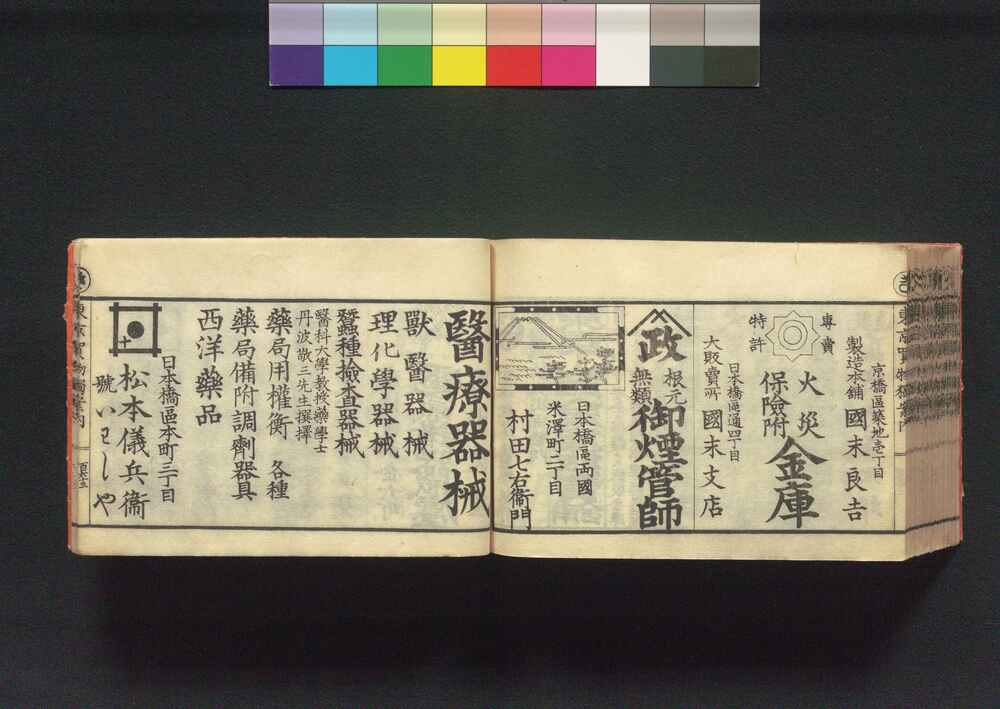 京橋區築地壱丁目
製造本舗 國末良吉
専賣
特許
火災
保險附
金庫
日本橋區通四丁目
大販賣所 國末支店
政
根元
無類
御煙管師
日本橋區両國
米澤町二丁目
村田七右衞門
醫療器械
獸醫器械
理化學器械
蠶種撿査器械
醫科大學教授藥學士
丹波敬三先生撰擇
藥局用權衡 各種
藥局備附調劑器具
西洋藥品
日本橋區本町三丁目
松本儀兵衞
號いわしや